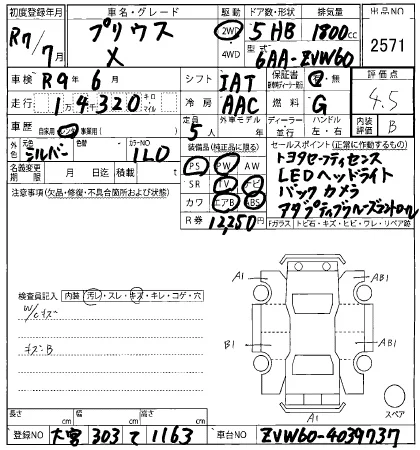 初度登録年月 車名・グレード 駆動 ドア数・形状 排気量 出品NO
R7/7月 プリウス X 2WD 4WD 5HB 1800cc 2571
型式 6AA-ZVW60
車検 R9年6月 シフト IAT 保証書 有・無 評価点 4.5
走行 14320 キロ・マイル 冷房 AAC 燃料 G 内装評価 B
車歴 自家用・レンタ・事業用( ) 定員 5人 外車モデル 年 ディーラー・並行 ハンドル 左・右
外色 元色 シルバー カラーNO 1L0 装備品(純正品に限る) セールスポイント(正常に動作するもの)
名義変更期限 月 日迄 積載量 t PS PW トヨタセーフティセンス
注意事項(欠品・修復・不具合箇所および状態) SR TV ナビ AW LEDヘッドライト
カワ エアB ABS バックカメラ
R券 12,250円 アダプティブクルーズコントロール
Fガラス トビ石・キズ・ヒビ・ワレ・リペア跡
検査員記入 内装 汚レ・スレ・キズ・キレ・コゲ・穴
W/Cキズ
キズ・B
A1 AB1
B1 AB1
A1
スペア
長さ cm 幅 cm 高さ cm
登録NO 大宮 303 て 1163 車台NO ZVW60-4039737